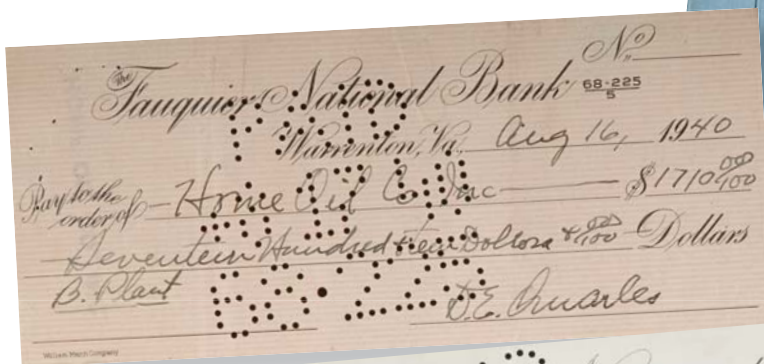 No
The Fauquier National Bank 68-225
5
Warrenton, Va. Aug 16, 1940
Pay to the order of Home Oil Co Inc $1710 00/100
Seventeen Hundred & ten Dollars & 00/100 Dollars
B. Plant
D.E. Quarles